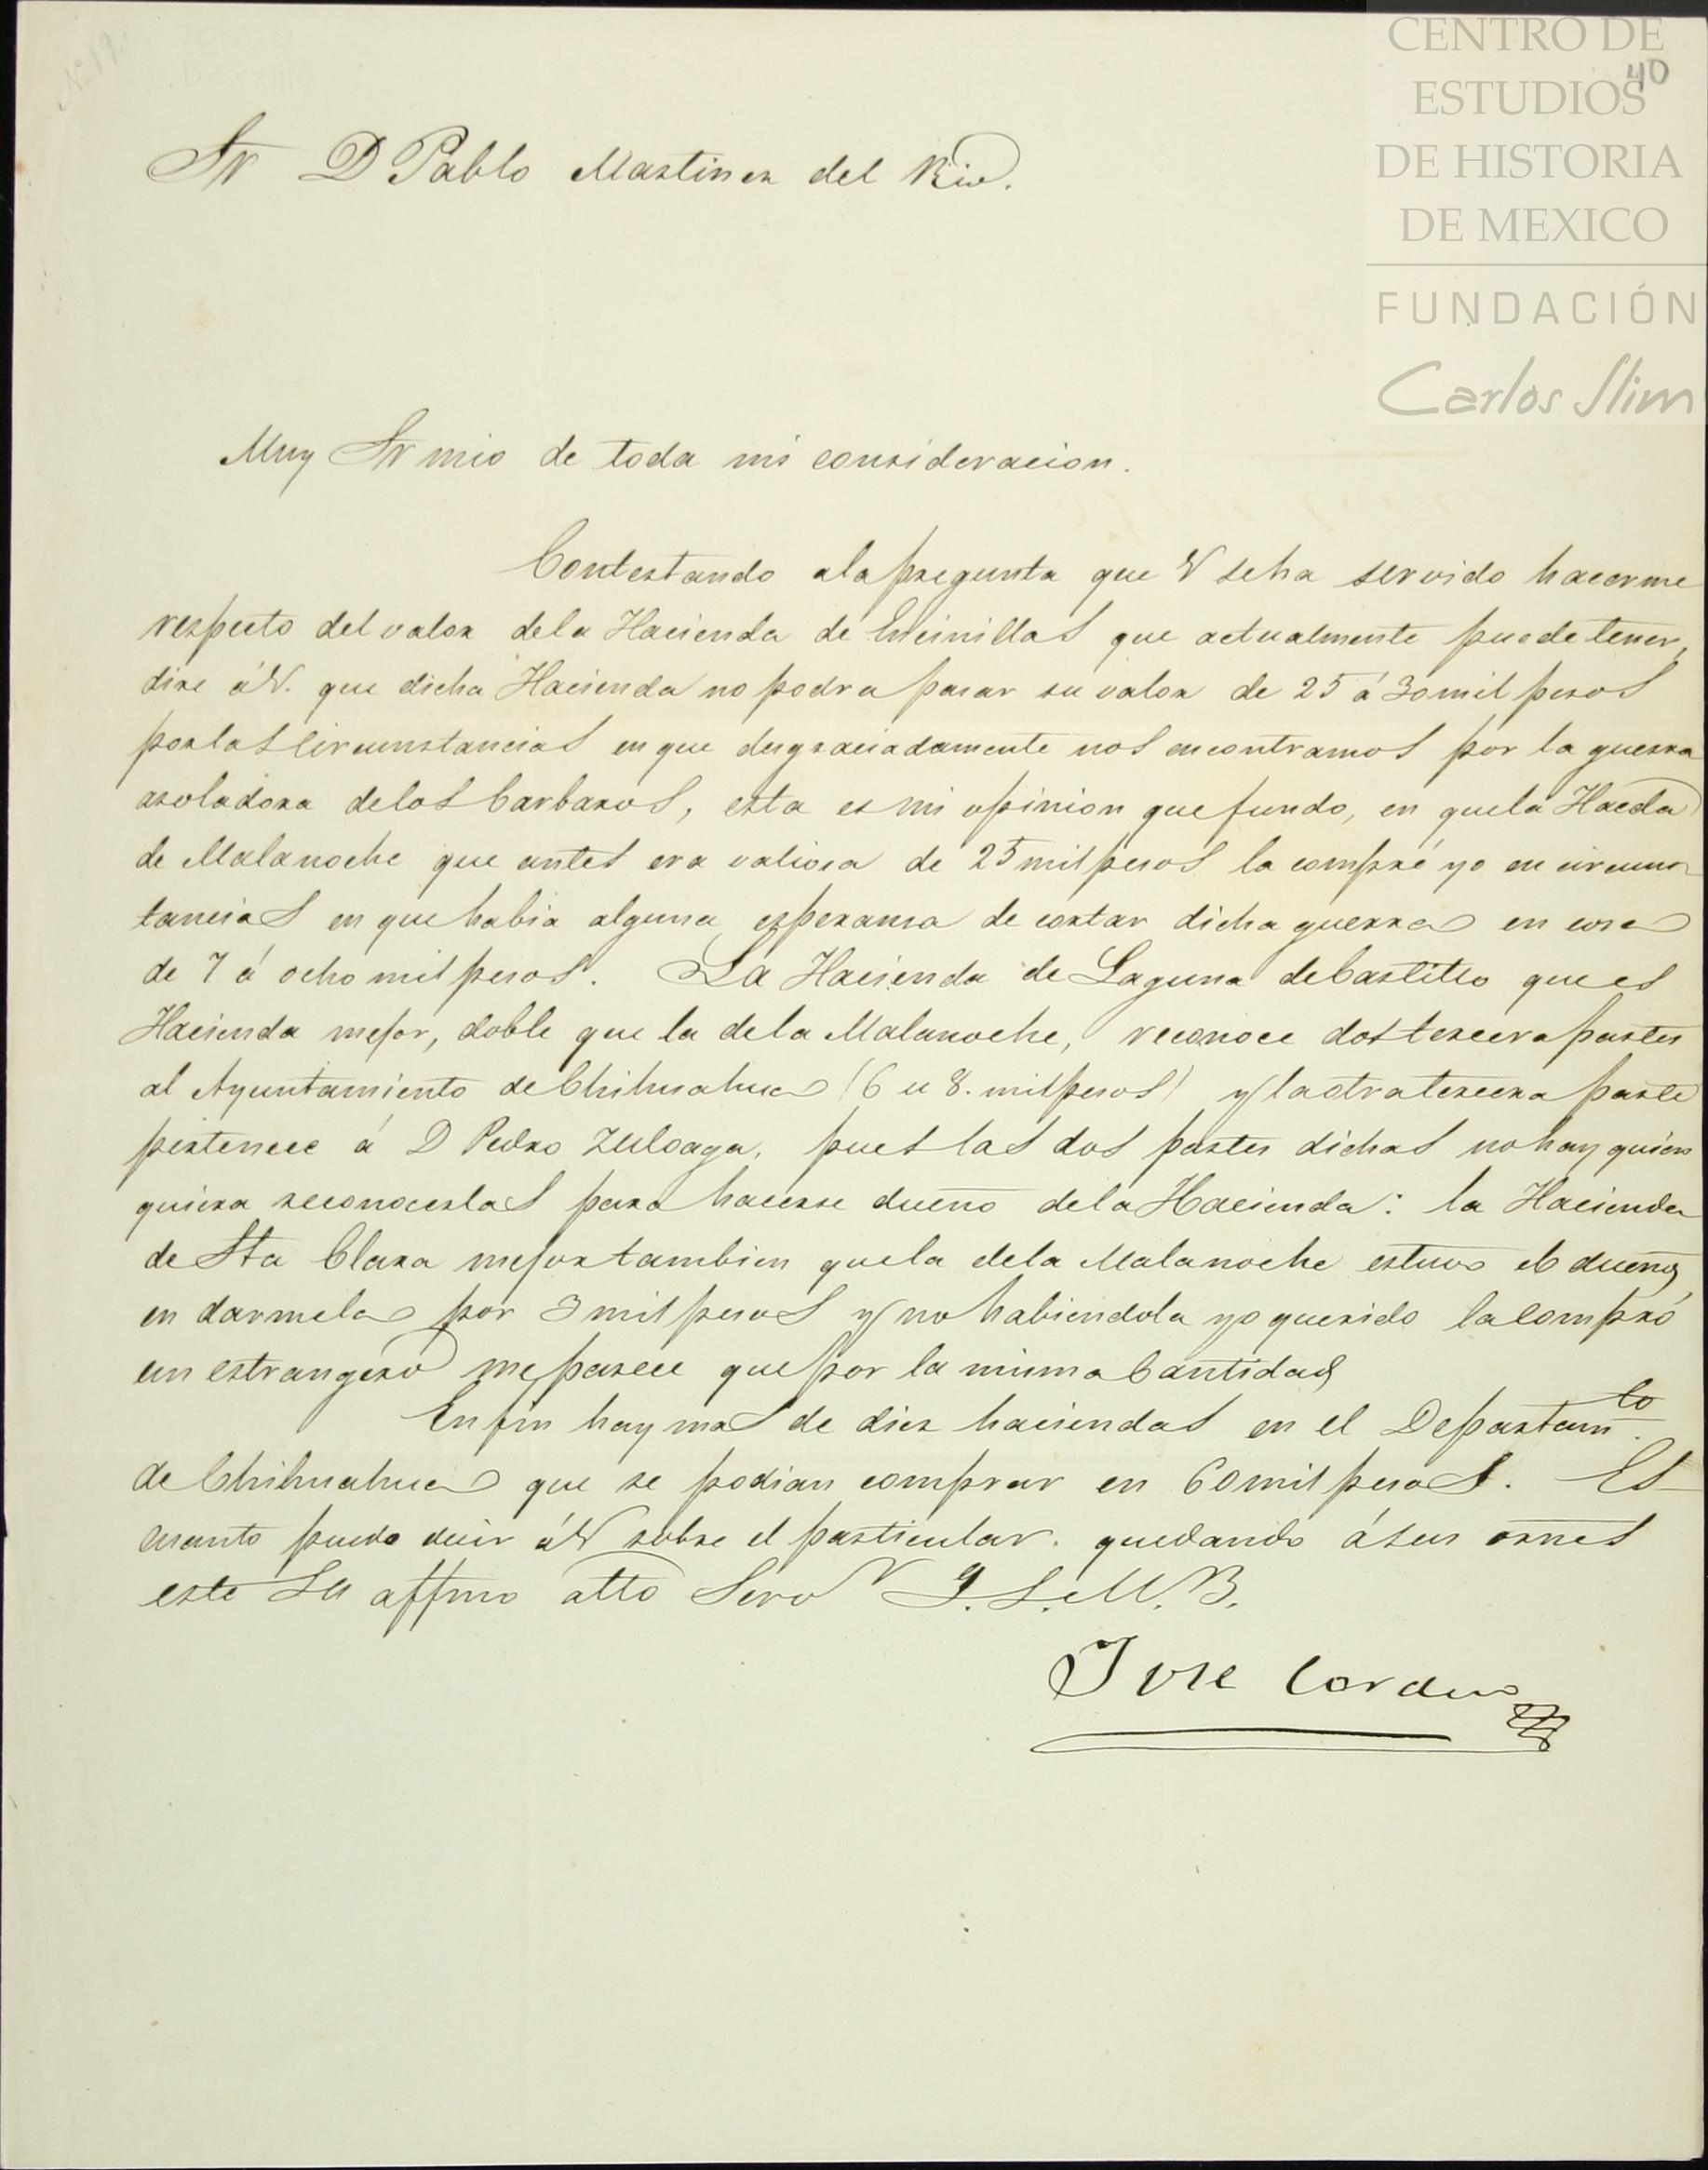 CENTRO DE
ESTUDIOS
DE HISTORIA
DE MEXICO
FUNDACIÓN
Carlos Slim
40
Sr D Pablo Martinez del Rio.
Muy Sr mio de toda mi consideracion.
Contestando ala pregunta que V seha servido hacerme
respecto del valor dela Hacienda de Encinillas que actualmente puede tener,
dire á V. que dicha Hacienda no podra pasar su valor de 25 á 30 mil pesos
por las circunstancias en que desgraciadamente nos encontramos por la guerra
asoladora delos barbaros, esta es mi opinion que fundo, en quela Hacda
de Malanoche que antes era valiosa de 25 mil pesos la compré yo en circuns
tancias en que habia alguna esperansa de cortar dicha guerra en cosa
de 7 á ocho mil pesos. La Hacienda de Laguna de Castillo que es
Hacienda mejor, doble que la dela Malanoche, reconoce dos tercera partes
al Ayuntamiento de Chihuahua (6 u 8. mil pesos) y la otra tercera parte
pertenece á D Pedro Zuloaga, pues las dos partes dichas no hay quien
quiera reconocerlas para hacerse dueño dela Hacienda: la Hacienda
de Sta Clara mejor tambien quela dela Malanoche estuvo el dueño
en darmela por 3 mil pesos y no habiendola yo querido la compró
un estrangero me parece que por la misma Cantidad
En fin hay mas de diez haciendas en el Departamto.
de Chihuahua que se podian comprar en 60 mil pesos. Es
cuanto puedo decir á V sobre el particular. quedando á sus ornes
este Su affmo atto Servr Q. S. M. B.
Jose Cordero